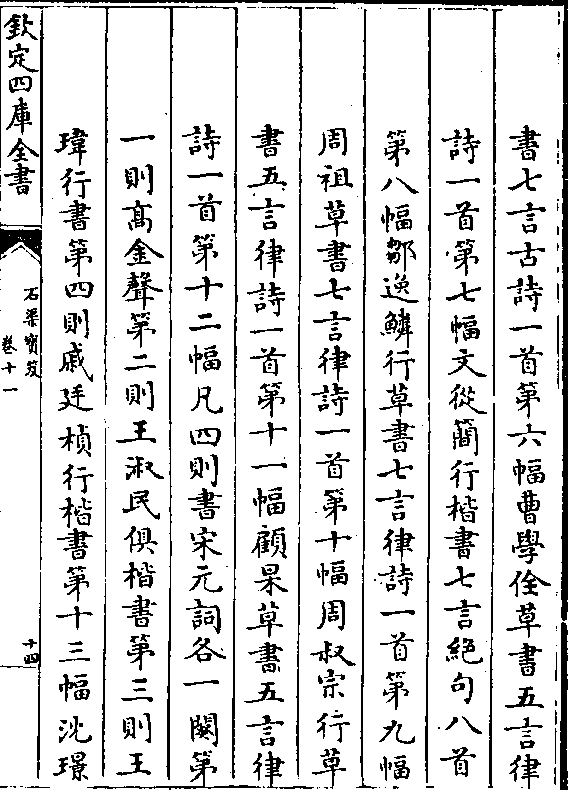 書七言古詩一首第六幅曹學佺草書五言律
詩一首第七幅文從簡行楷書七言絕句八首
第八幅鄒逸鱗行草書七言律詩一首第九幅
周祖草書七言律詩一首第十幅周叔宗行草
書五言律詩一首第十一幅顧杲草書五言律
詩一首第十二幅凡四則書宋元詞各一闋第
一則髙金聲第二則王淑民俱楷書第三則王
瑋行書第四則戚廷楨行楷書第十三幅沈璟
欽定四庫全書
石渠寳笈
卷十一
十四